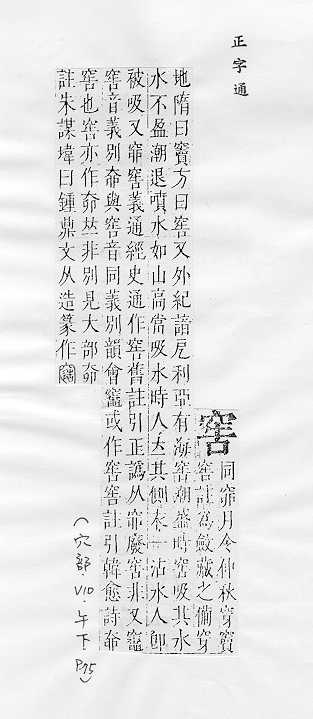 正字通
窖
同窌月令仲秋穿竇
窖註為斂藏之備穿
地隋曰竇方曰窖又外紀諳尼利亞有海窖潮盛時窖吸其水
水不盈潮退噴水如山高當吸水時人立其側衣一沾水人卽
被吸又窌窖義通經史通作窖舊註引正譌从窌廢窖非又竈
窖音義別奅與窖音同義別韻會竈或作窖窖註引韓愈詩奅
窖也窖亦作奅𠀤非別見大部奅
註朱謀㙔曰鍾鼎文从造篆作
(穴部.V10.午下 P75)